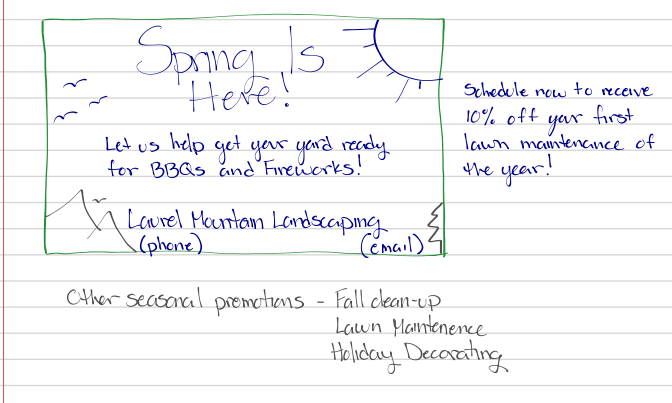 Spring Is
Here!
Let us help get your yard ready
for BBQs and Fireworks!
Laurel Mountain Landscaping
(phone) (email)
Schedule now to receive
10% off your first
lawn maintenance of
the year!
Other seasonal promotions - Fall clean-up
Lawn Maintenence
Holiday Decorating